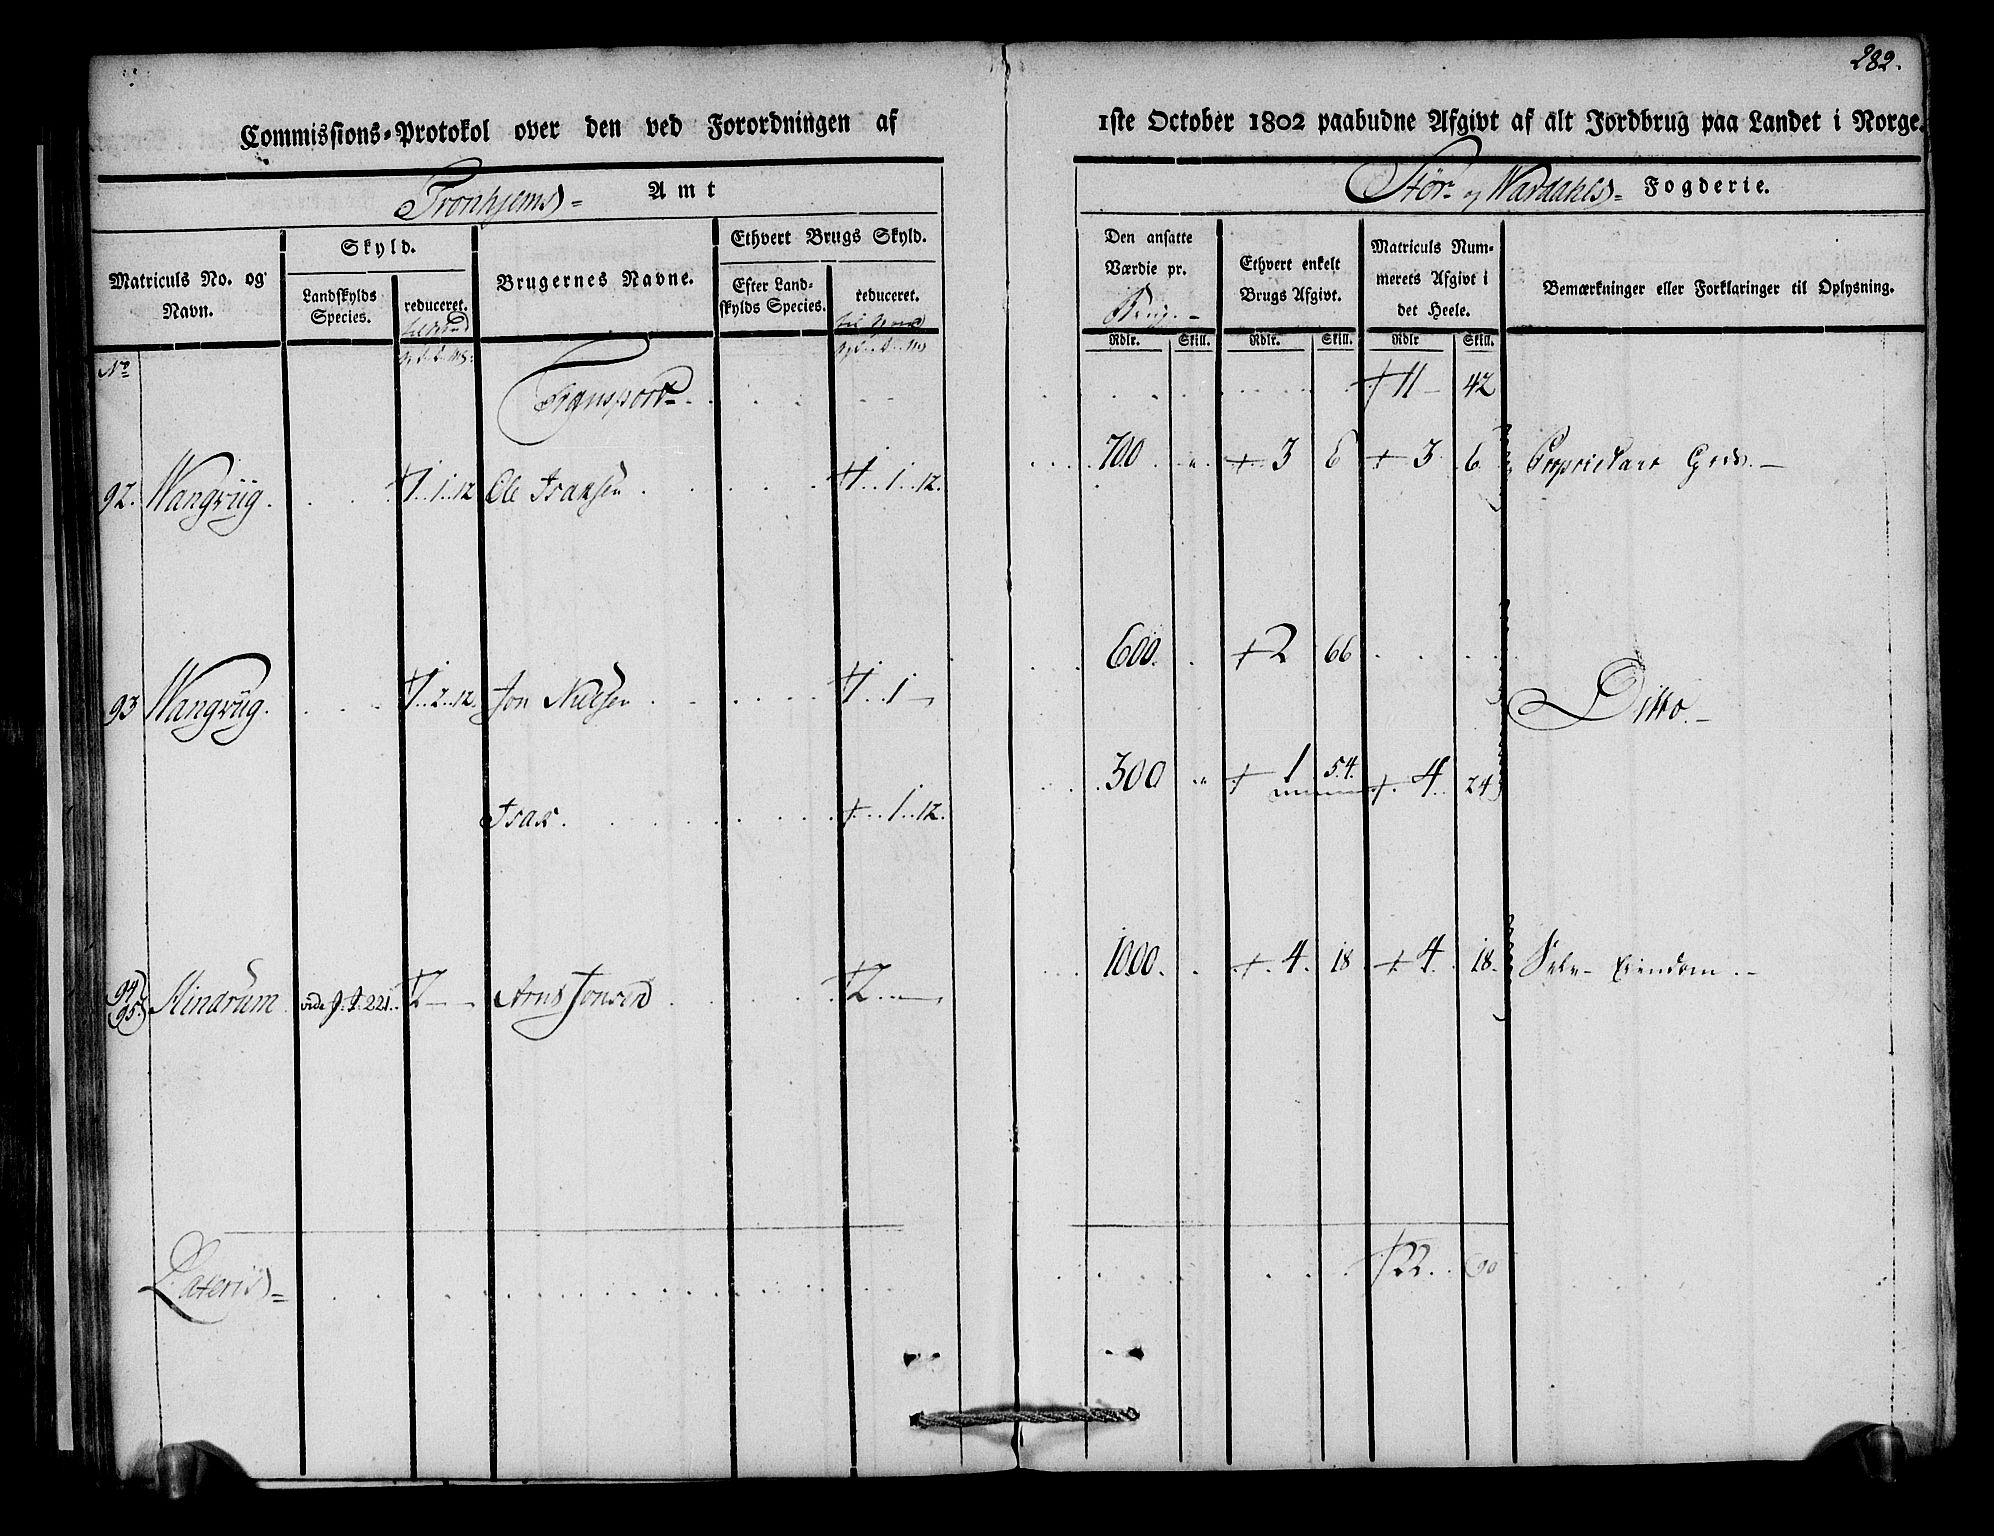 282.
Commissions-Protokol over den ved Forordningen af 1ste October 1802 paabudne Afgivt af alt Jordbrug paa Landet i Norge.
Tronhjems Amt
Stör- og Wardahls Fogderie.
Matriculs No. og Navn.
Skyld.
Landskylds Species.
reduceret.
Brugernes Navne.
Ethvert Brugs Skyld.
Efter Landskylds Species.
reduceret.
Den ansatte Værdie pr.
Brug.
Ethvert enkelt Brugs Afgivt.
Matriculs Nummerets Afgivt i det Heele.
Bemærkninger eller Forklaringer til Oplysning.
Rdlr. Skill. Rdlr. Skill. Rdlr Skill.
No
Transport 11 42
92. Wangviig. 1..1..12 Ole Isaksen 1..1..12. 700 3 6 3 6 Proprietair
93 Wangviig. 1..2..12. Jon Nielsen 1..1 600. 2 66 Ditto.
Isak. 1..12. 300 1 54. 4 24
94 95. Mindrum vide J. J. 221. 2 Arnt Jonsen 2 1000. 4 18 4 18. Selv-Eiendom.
Lateris 22 90